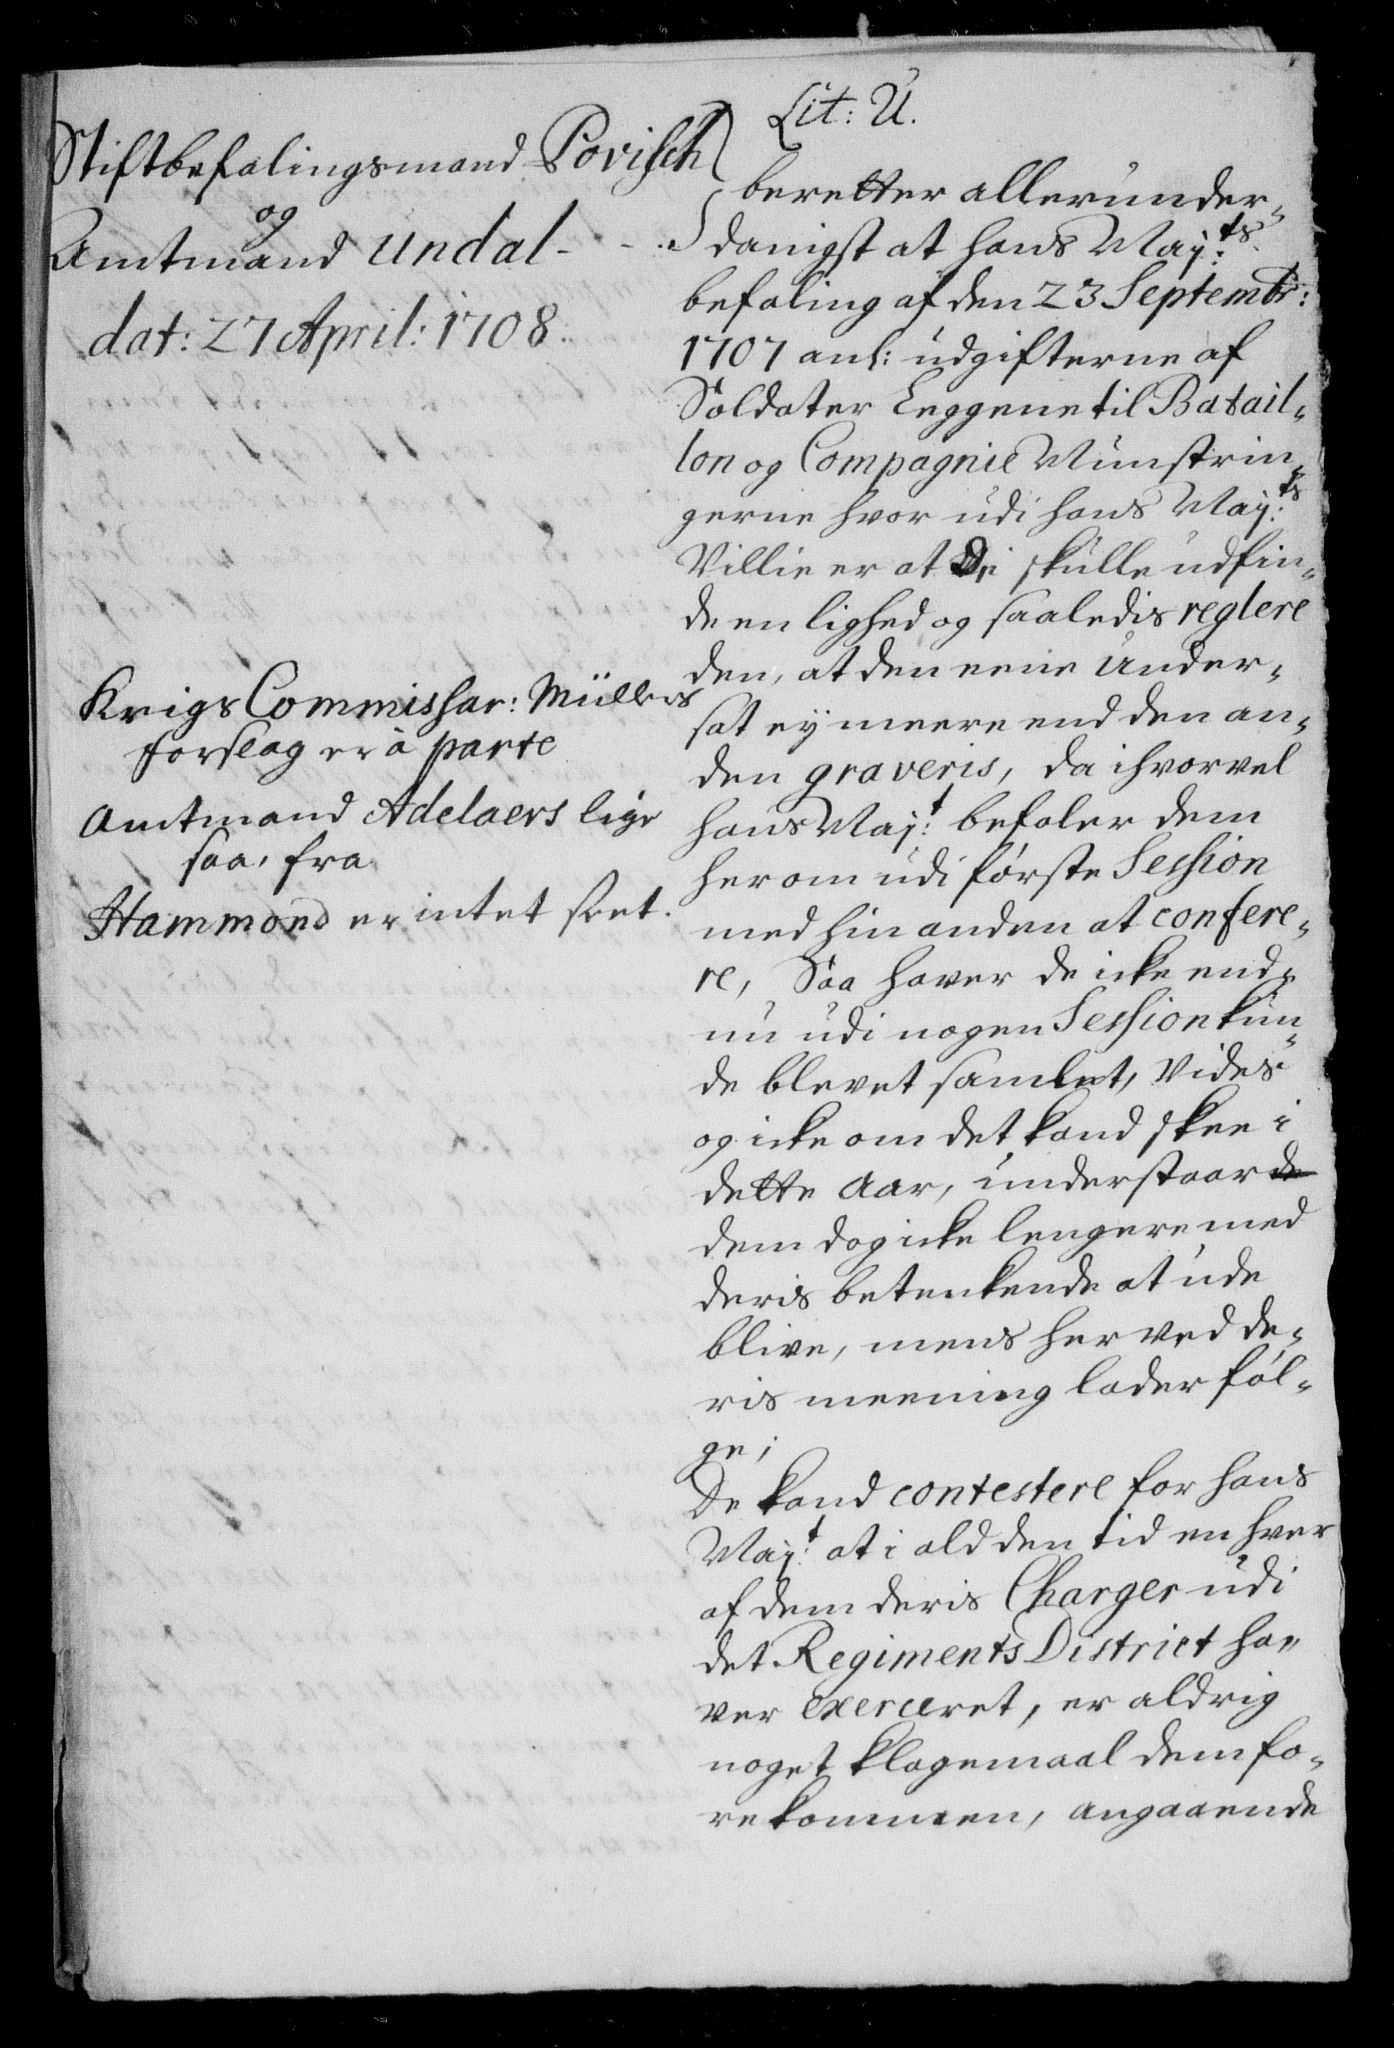 Lit: U.
Stiftbefalingsmand Povisch
og
Amtmand Undal - - .
dat: 27 April: 1708.
Krigs Commissar: Müllers
forslag er à parte
Amtmand Adelaers lige
saa, fra
Hammond er intet seet.
beretter allerunder-
danigst at hans Maj:ts
befaling af den 23 Septembr:
1707 anl: udgifterne af
Soldater Leggene til Batail-
lon og Compagnie Munstrin-
gerne hvor udi hans Maj:ts
Villie er at De skulle udfin-
de en lighed og saaledis reglere
den, at den eene Under-
sat ey meere end den an-
den graveris, da ihvorvel
hans Maj:t befaler dem
herom udi første Session
med hin anden at confere-
re, Saa haver de icke end-
nu udi nogen Session kun-
de blevet samlet, Vides
og icke om det kand skee i
dette Aar, understaar de
dem dog icke lengere med
deris betenkende at ude
blive, mens her ved de-
ris meening lader føl-
ge;
De kand contestere for hans
Maj:t at i ald den tid en hver
af dem deris Charger udi
det Regiments District ha-
ver exerceret, er aldrig
noget klagemaal dem fo-
rekommen, angaaende